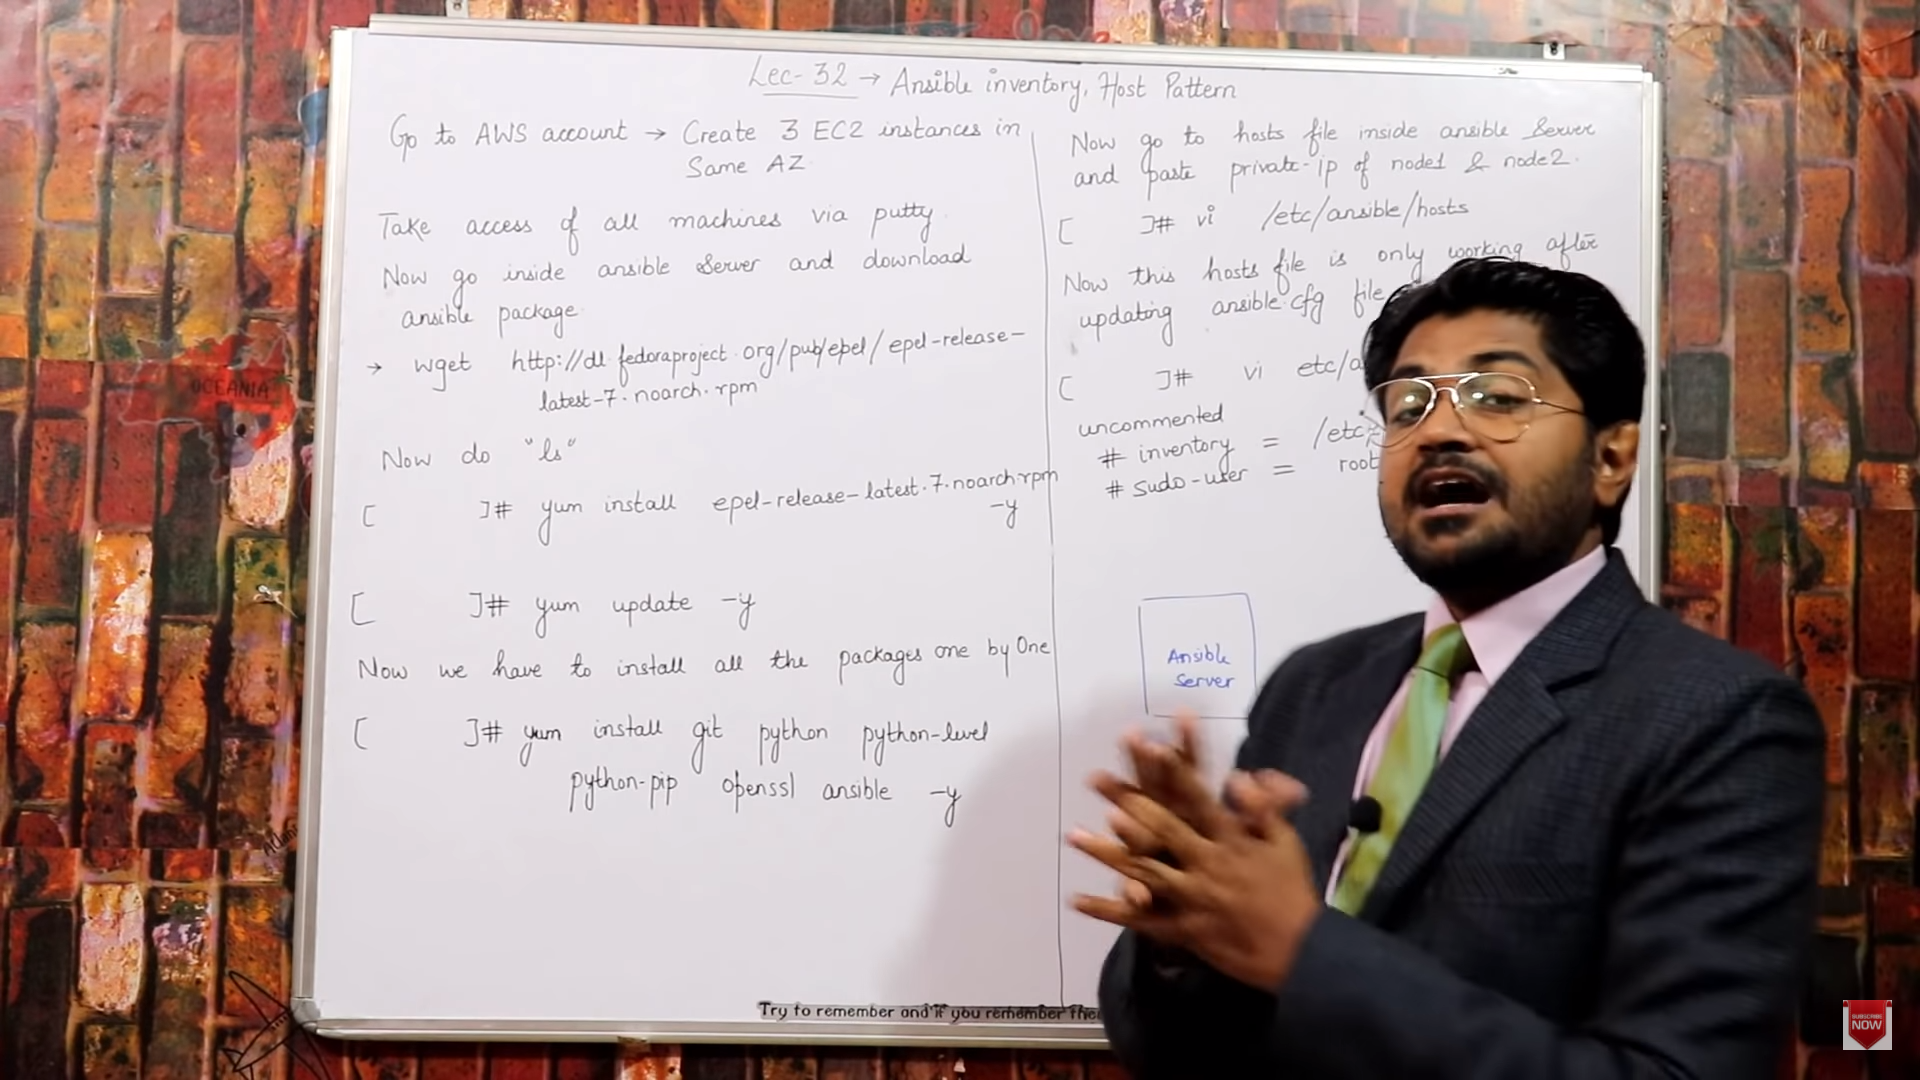 Lec-32 → Ansible inventory, Host Pattern
Go to AWS account → Create 3 EC2 instances in
Same AZ
Take access of all machines via putty
Now go inside ansible Server and download
ansible package
→ wget http://dl.fedoraproject.org/pub/epel/epel-release-
latest-7.noarch.rpm
Now do "ls"
[ ]# yum install epel-release-latest.7.noarch.rpm
-y
[ ]# yum update -y
Now we have to install all the packages one by One
[ ]# yum install git python python-level
python-pip openssl ansible -y
Now go to hosts file inside ansible Server
and paste private-ip of node1 & node2.
[ ]# vi /etc/ansible/hosts
Now this hosts file is only working after
updating ansible.cfg file
[ ]# vi etc/a
uncommented
# inventory = /etc
# sudo-user = root
Ansible
Server
Try to remember and if you remember
OCEANIA
SUBSCRIBE
NOW